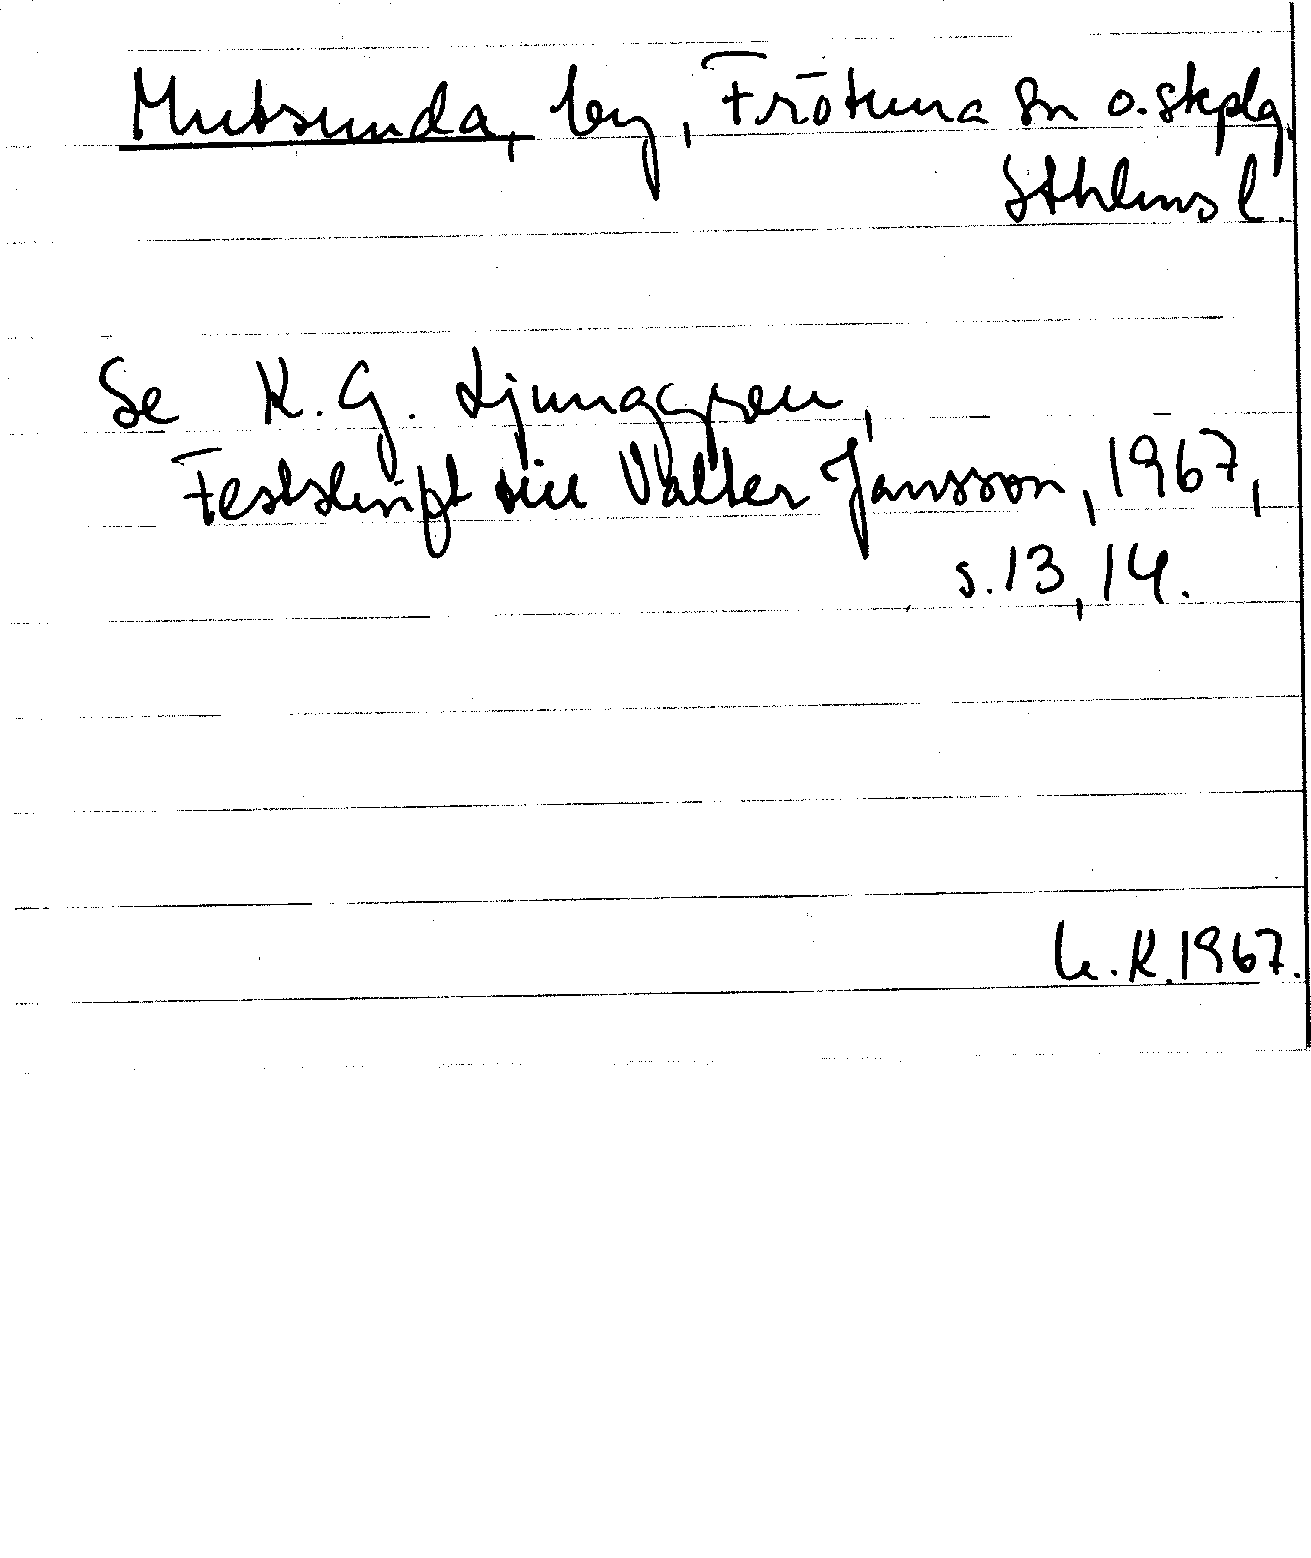 Mutsunda, by, Frötuna sn o. skplg,
Sthlms l.
Se K. G. Ljunggren,
Festskrift till Valter Jansson, 1967,
s. 13, 14.
K. 1967.